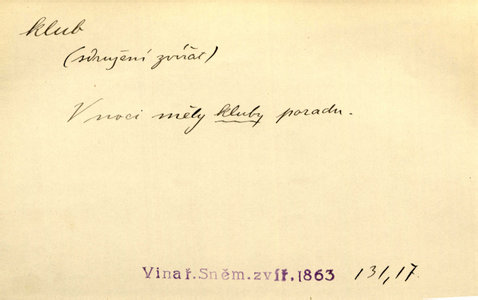 klub
(sdružení zvířat)
V noci měly kluby poradu.
Vinař.Sněm.zvíř.1863 131,17.